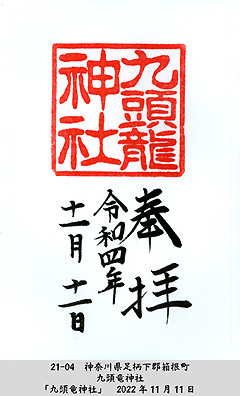 九頭龍
神社
奉拝
令和四年
十一月十一日
21-04 神奈川県足柄下郡箱根町
九頭竜神社
「九頭竜神社」 2022年11月11日